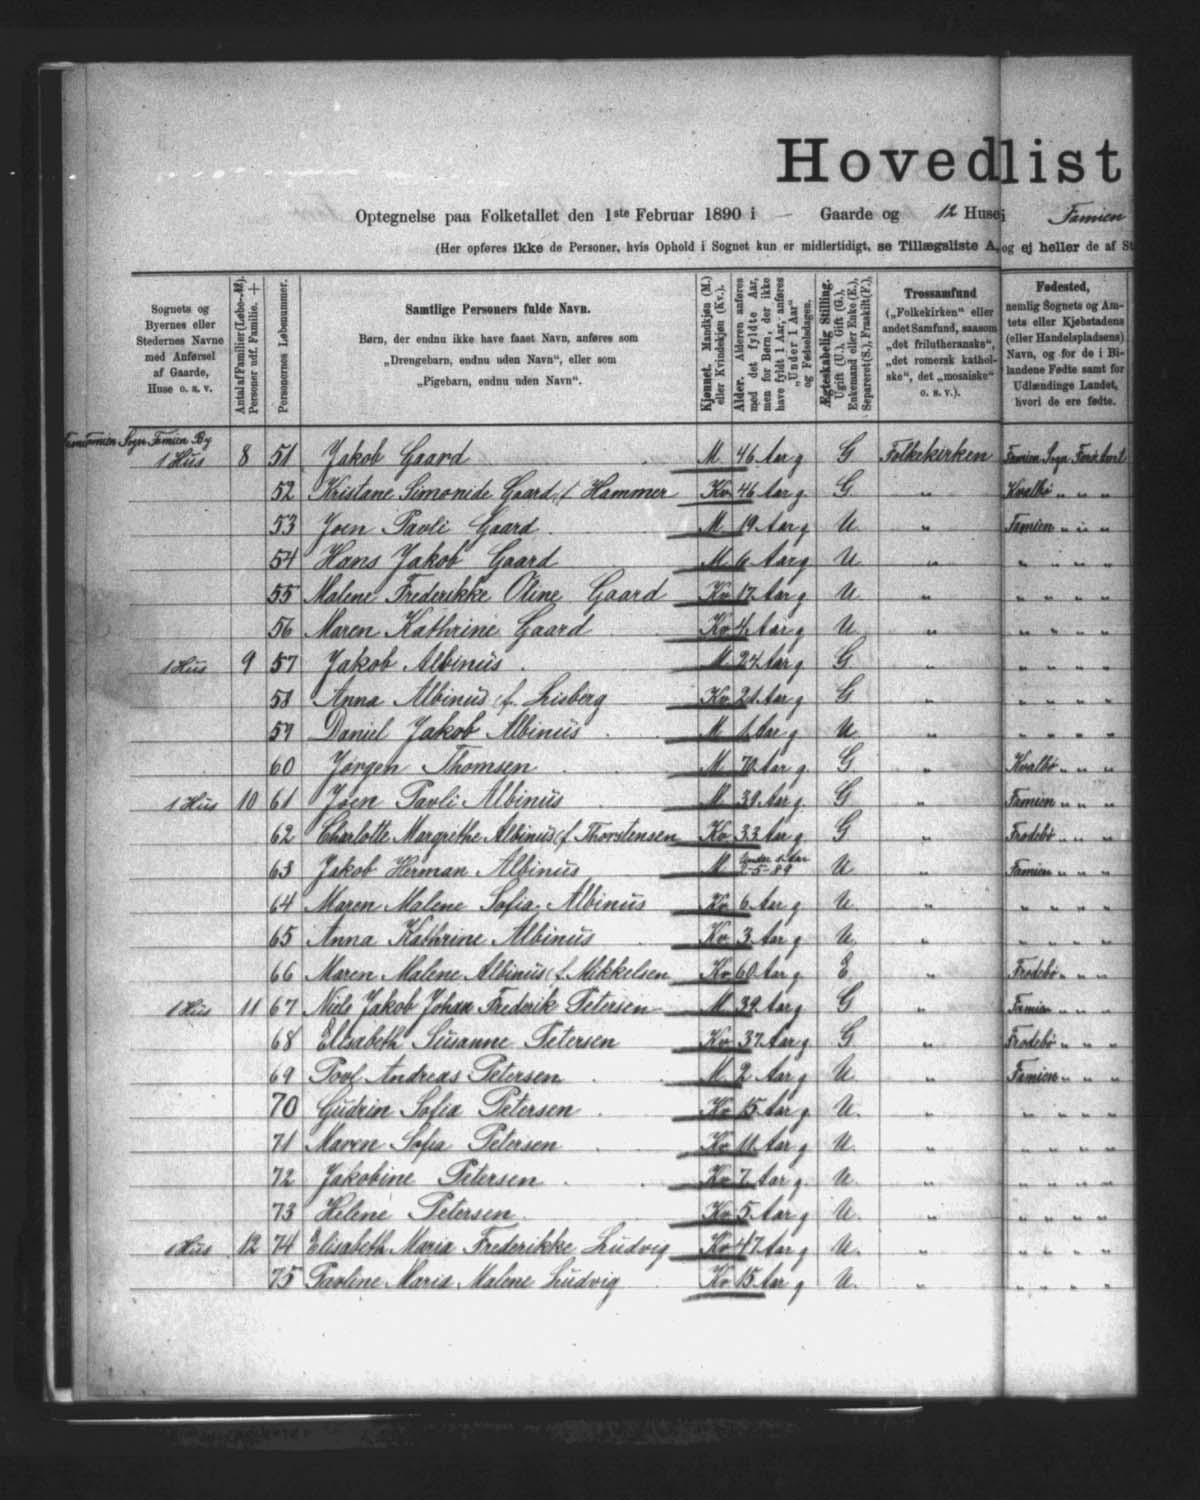 Hovedlist
Optegnelse paa Folketallet den 1ste Februar 1890 i — Gaarde og 12 Huse i Famien
(Her opføres ikke de Personer, hvis Ophold i Sognet kun er midlertidigt, se Tillægsliste A, og ej heller de af St
Sognets og Byernes eller Stedernes Navne med Anførsel af Gaarde, Huse o. s. v.
Antal af Familier (Løbe-№). Personer udf. Familie. +
Personernes Løbenummer.
Samtlige Personers fulde Navn.
Børn, der endnu ikke have faaet Navn, anføres som
„Drengebarn, endnu uden Navn“, eller som
„Pigebarn, endnu uden Navn“.
Kjønnet. Mandkjøn (M.) eller Kvindekjøn (Kv.).
Alder. Alderen anføres med det fyldte Aar, men for Børn, der ikke have fyldt 1 Aar, anføres „Under 1 Aar“ og Fødselsdagen.
Ægteskabelig Stilling. Ugift (U.), Gift (G.), Enkemand eller Enke (E.), Separeret (S.), Fraskilt (F.),
Trossamfund („Folkekirken“ eller andet Samfund, saasom „det frilutheranske“, „det romersk katholske“, det „mosaiske“ o. s. v.).
Fødested, nemlig Sognets og Amtets eller Kjøbstadens (eller Handelspladsens) Navn, og for de i Bilandene Fødte samt for Udlændinge Landet, hvori de ere fødte.
Famien Sogn Famien By
1 Hus 8 51 Jakob Gaard M 46 Aar g G Folkekirken Famien Sogn Færø Amt
52 Kristane Simonide Gaard f. Hammer Kv 46 Aar g G „ Kvalbø „ „ „
53 Joen Pavli Gaard M 19 Aar g U „ Famien „ „ „
54 Hans Jakob Gaard M 6 Aar g U „ „ „ „ „
55 Malene Frederikke Otine Gaard Kv 17 Aar g U „ „ „ „ „
56 Maren Kathrine Gaard Kv 4 Aar g U „ „ „ „ „
1 Hus 9 57 Jakob Albinus M 24 Aar g G „ „ „ „ „
58 Anna Albinus f. Lisberg Kv 21 Aar g G „ „ „ „ „
59 Daniel Jakob Albinus M 1 Aar g U „ „ „ „ „
60 Jørgen Thomsen M 70 Aar g G „ Kvalbø „ „ „
1 Hus 10 61 Joen Pavli Albinus M 39 Aar g G „ Famien „ „ „
62 Charlotte Margrethe Albinus f. Thorstensen Kv 33 Aar g G „ Frodebø „ „ „
63 Jakob Herman Albinus M Under 1 Aar -5-89 U „ Famien „ „ „
64 Maren Malene Sofia Albinus Kv 6 Aar g U „ „ „ „ „
65 Anna Kathrine Albinus Kv 3 Aar g U „ „ „ „ „
66 Maren Malene Albinus f. Mikkelsen Kv 60 Aar g E „ Frodebø „ „ „
1 Hus 11 67 Niels Jakob Johan Frederik Petersen M 39 Aar g G „ Famien „ „ „
68 Elisabeth Susanne Petersen Kv 37 Aar g G „ Frodebø „ „ „
69 Povl Andreas Petersen M 2 Aar g U „ Famien „ „ „
70 Gudrin Sofia Petersen Kv 15 Aar g U. „ „ „ „ „
71 Maren Sofia Petersen Kv 11 Aar g U. „ „ „ „ „
72 Jakobine Petersen Kv 7 Aar g U „ „ „ „ „
73 Helene Petersen Kv 5 Aar g U. „ „ „ „ „
1 Hus 12 74 Elisabeth Maria Frederikke Ludvig Kv 47 Aar g U. „ „ „ „ „
75 Pavline Maria Malene Ludvig Kv 15 Aar g U. „ „ „ „ „